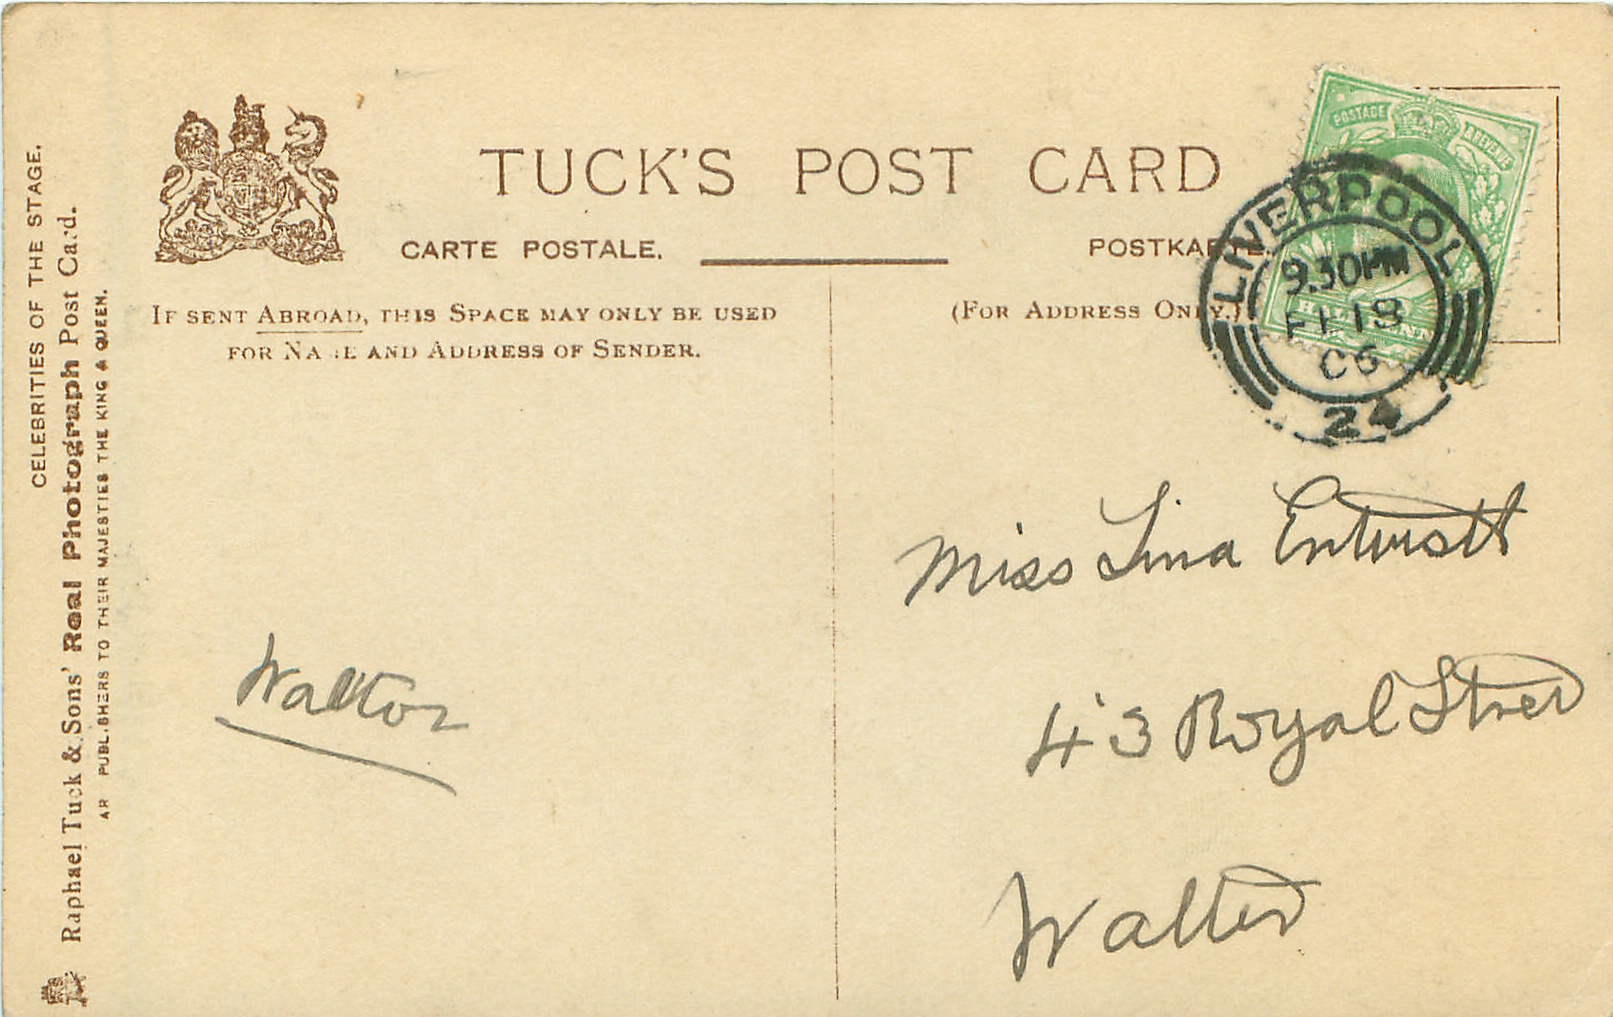 TUCK'S POST CARD
CARTE POSTALE.
POSTKARTE.
IF SENT ABROAD, THIS SPACE MAY ONLY BE USED
FOR NAME AND ADDRESS OF SENDER.
(FOR ADDRESS ONLY.)
POSTAGE & REVENUE
HALFPENNY
LIVERPOOL
9.30PM
FE 18
06
24
CELEBRITIES OF THE STAGE.
Raphael Tuck & Sons' Real Photograph Post Card.
ART PUBLISHERS TO THEIR MAJESTIES THE KING & QUEEN.
Walton
Miss Lina Entwistl
43 Royal Street
Walton